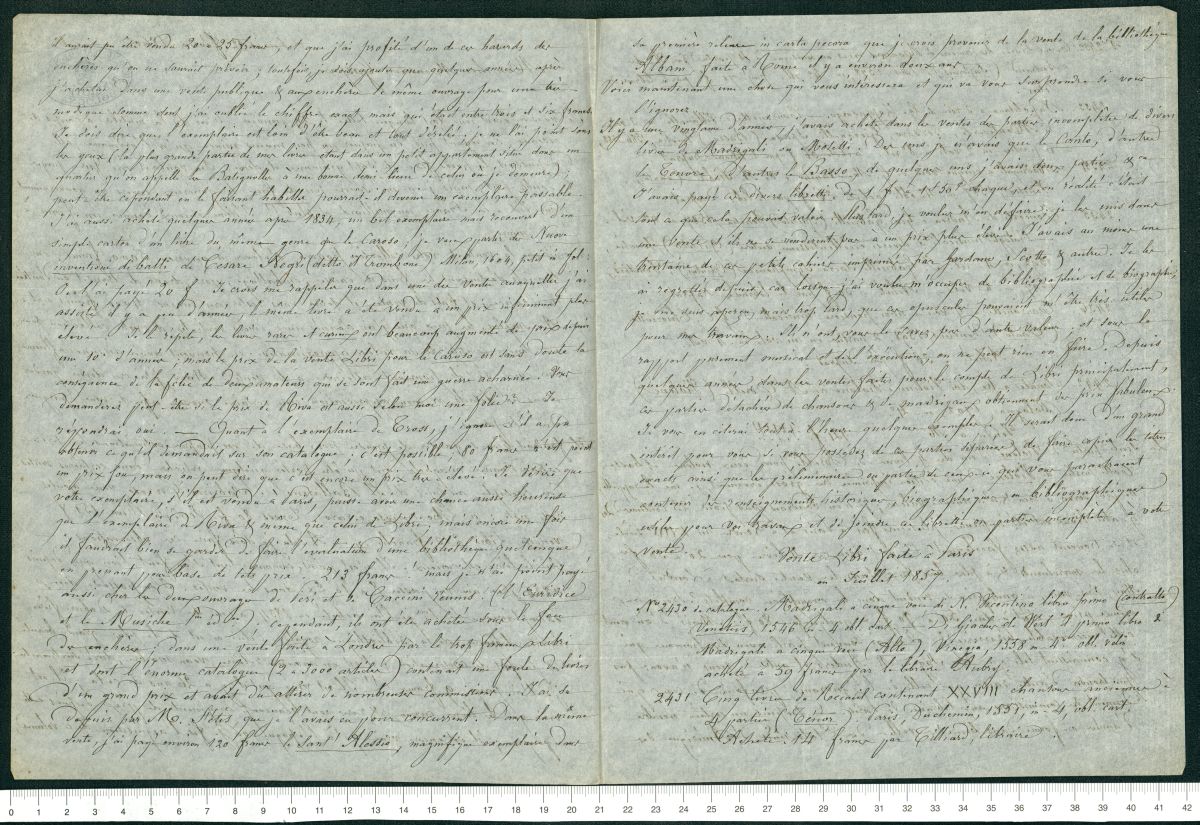 il aurait pu être vendu 20 à 25 francs, et que j'ai profité d'un de ces hasards des
enchères qu'on ne saurait prévoir; toutefois, je dois ajouter que quelques années après
j'achetai dans une vente publique & aux enchères le même ouvrage pour une très
modique somme dont j'ai oublié le chiffre exact mais qui était entre trois et six francs.
Je dois dire que l'exemplaire est loin d'être beau et tout dérelié; je ne l'ai point sous
les yeux (la plus grande partie de mes livres étant dans un petit appartement situé dans un
quartier qu'on appelle les Batignolles à une bonne demi-lieue de celui où je demeure);
peut-être cependant en le faisant habiller pourrait-il devenir un exemplaire passable.
J'ai aussi acheté quelques années après 1834 un bel exemplaire mais recouvert d'un
simple carton d'un livre du même genre que le Caroso; je veux parler de Nuove
inventione di balli de Cesare Negri (detto il Trombone) Milan, 1604, petit in fol:
Je l'ai payé 20 f. Je crois me rappeler que dans une des ventes auxquelles j'ai
assisté il y a peu d'années, le même livre a été vendu à un prix infiniment plus
élevé. Je le répète, les livres rares et curieux ont beaucoup augmenté de prix depuis
une 10e d'années; mais le prix de la vente Libri pour le Caroso est sans doute la
conséquence de la folie de deux amateurs qui se sont fait une guerre acharnée. Vous
demanderez peut-être si le prix de Riva est aussi selon moi une folie? — Je
répondrai oui. — Quant à l'exemplaire de Tross, j'ignore s'il a pu
obtenir ce qu'il demandait sur son catalogue; c'est possible. 80 francs n'est point
un prix fou, mais on peut dire que c'est encore un prix très élevé. Je désire que
votre exemplaire, s'il est vendu à Paris, puisse avoir une chance aussi heureuse
que l'exemplaire de Riva & même que celui de Libri, mais encore une fois
il faudrait bien se garder de faire l'évaluation d'une bibliothèque quelconque
en prenant pour base de tels prix. 213 francs! mais je n'ai point payé
aussi cher les deux ouvrages de Peri et de Caccini réunis (l'Euridice
et le Musiche); cependant, ils ont été achetés sous le feu
des enchères, dans une vente faite à Londres par le trop fameux Libri
et dont l'énorme catalogue (2 à 3000 articles) contenait une foule de livres
d'un grand prix et avait dû attirer de nombreuses commissions. J'ai su
depuis par M. Fétis que je l'avais eu pour concurrent. Dans la même
vente, j'ai payé environ 120 francs le Sant' Alessio, magnifique exemplaire dans
sa première reliure in carta pecora que je crois provenir de la vente de la bibliothèque
Albani faite à Rome il y a environ deux ans.
Voici maintenant une chose qui vous intéressera et qui va vous surprendre si vous
l'ignorez.
Il y a une vingtaine d'années, j'avais acheté dans les ventes des parties incomplètes de divers
livres de Madrigali ou Motetti. Des uns je n'avais que le Canto, d'autres
le Tenore, d'autres le Basso, de quelques uns j'avais deux parties &ca
J'avais payé ces divers libretti de 1 f. à 1f 50c chaque, et en réalité c'était
tout ce que cela pouvait valoir. Plus tard, je voulus m'en défaire; je les mis dans
une vente & ils ne se vendirent pas à un prix plus élevé. J'avais au moins une
trentaine de ces petits cahiers imprimés par Gardane, Scotto & autres. Je les
ai regrettés depuis, car lorsque j'ai voulu m'occuper de bibliographie et de biographie,
je me suis aperçu, mais trop tard, que ces opuscules pouvaient m'être très utiles
pour mes travaux. Ils n'ont, vous le savez, pas d'autre valeur et sous le
rapport purement musical et de l'exécution, on ne peut rien en faire. Depuis
quelques années, dans les ventes faites pour le compte de Libri principalement,
ces parties détachées de chansons & de madrigaux obtiennent des prix fabuleux.
Je vous en citerai tout à l'heure quelques exemples. Il serait donc d'un grand
intérêt pour vous si vous possédez de ces parties séparées de faire copier les titres
exacts ainsi que les préliminaires ou parties de ceux-ci qui vous paraîtraient
contenir des renseignements historiques, biographiques ou bibliographiques
utiles pour vos travaux et de joindre ces libretti ou parties incomplètes à votre
vente.
Vente Libri faite à Paris
en Juillet 1857.
No 2430 du catalogue. Madrigali a cinque voci di N. Vicentino libro primo (Contralto)
Venetiis 1546 in 4 obl. dért. — Di Giaches de Wert il primo libro de
Madrigali a cinque voci (Alto), Vinegia, 1558 in 4° obl. vélin
acheté à 39 francs par le libraire Aubry.
2431 Cinq livres de Recueil contenant XXVIII chansons anciennes à
4 parties (Tenor). Paris, Duchemin, 1551, in 4, obl. cart.
Acheté 14 francs par Tilliard, libraire.